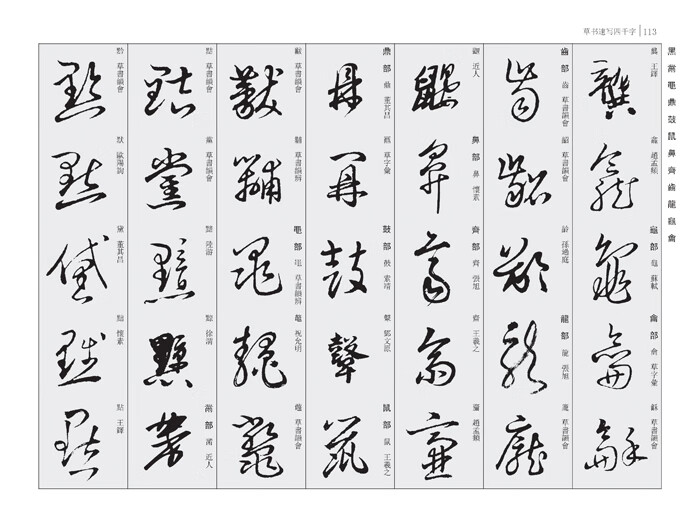 草书速写四千字 113
黑 黹 黽 鼎 鼓 鼠 鼻 齊 齒 龍 龜 龠
黔 草書韻會
默 歐陽詢
黛 董其昌
黜 懷素
點 王鐸
黠 草書韻會
黨 草書韻會
黯 陸游
黹部 黹 近人
黻 草書韻會
黼 草書韻辨
黽部 黽 草書韻辨
黿 祝允明
鼇 草書韻會
鼎部 鼎 董其昌
鼐 草字彙
鼓部 鼓 索靖
鼙 鄧文原
鼠部 鼠 王羲之
鼴 近人
鼻部 鼻 懷素
齊部 齊 張旭
齋 王羲之
齏 趙孟頫
齒部 齒 草書韻會
齠 草書韻會
齡 孫過庭
龍部 龍 張旭
龐 草書韻會
龔 王鐸
龕 趙孟頫
龜部 龜 蘇軾
龠部 龠 草字彙
龢 草書韻會